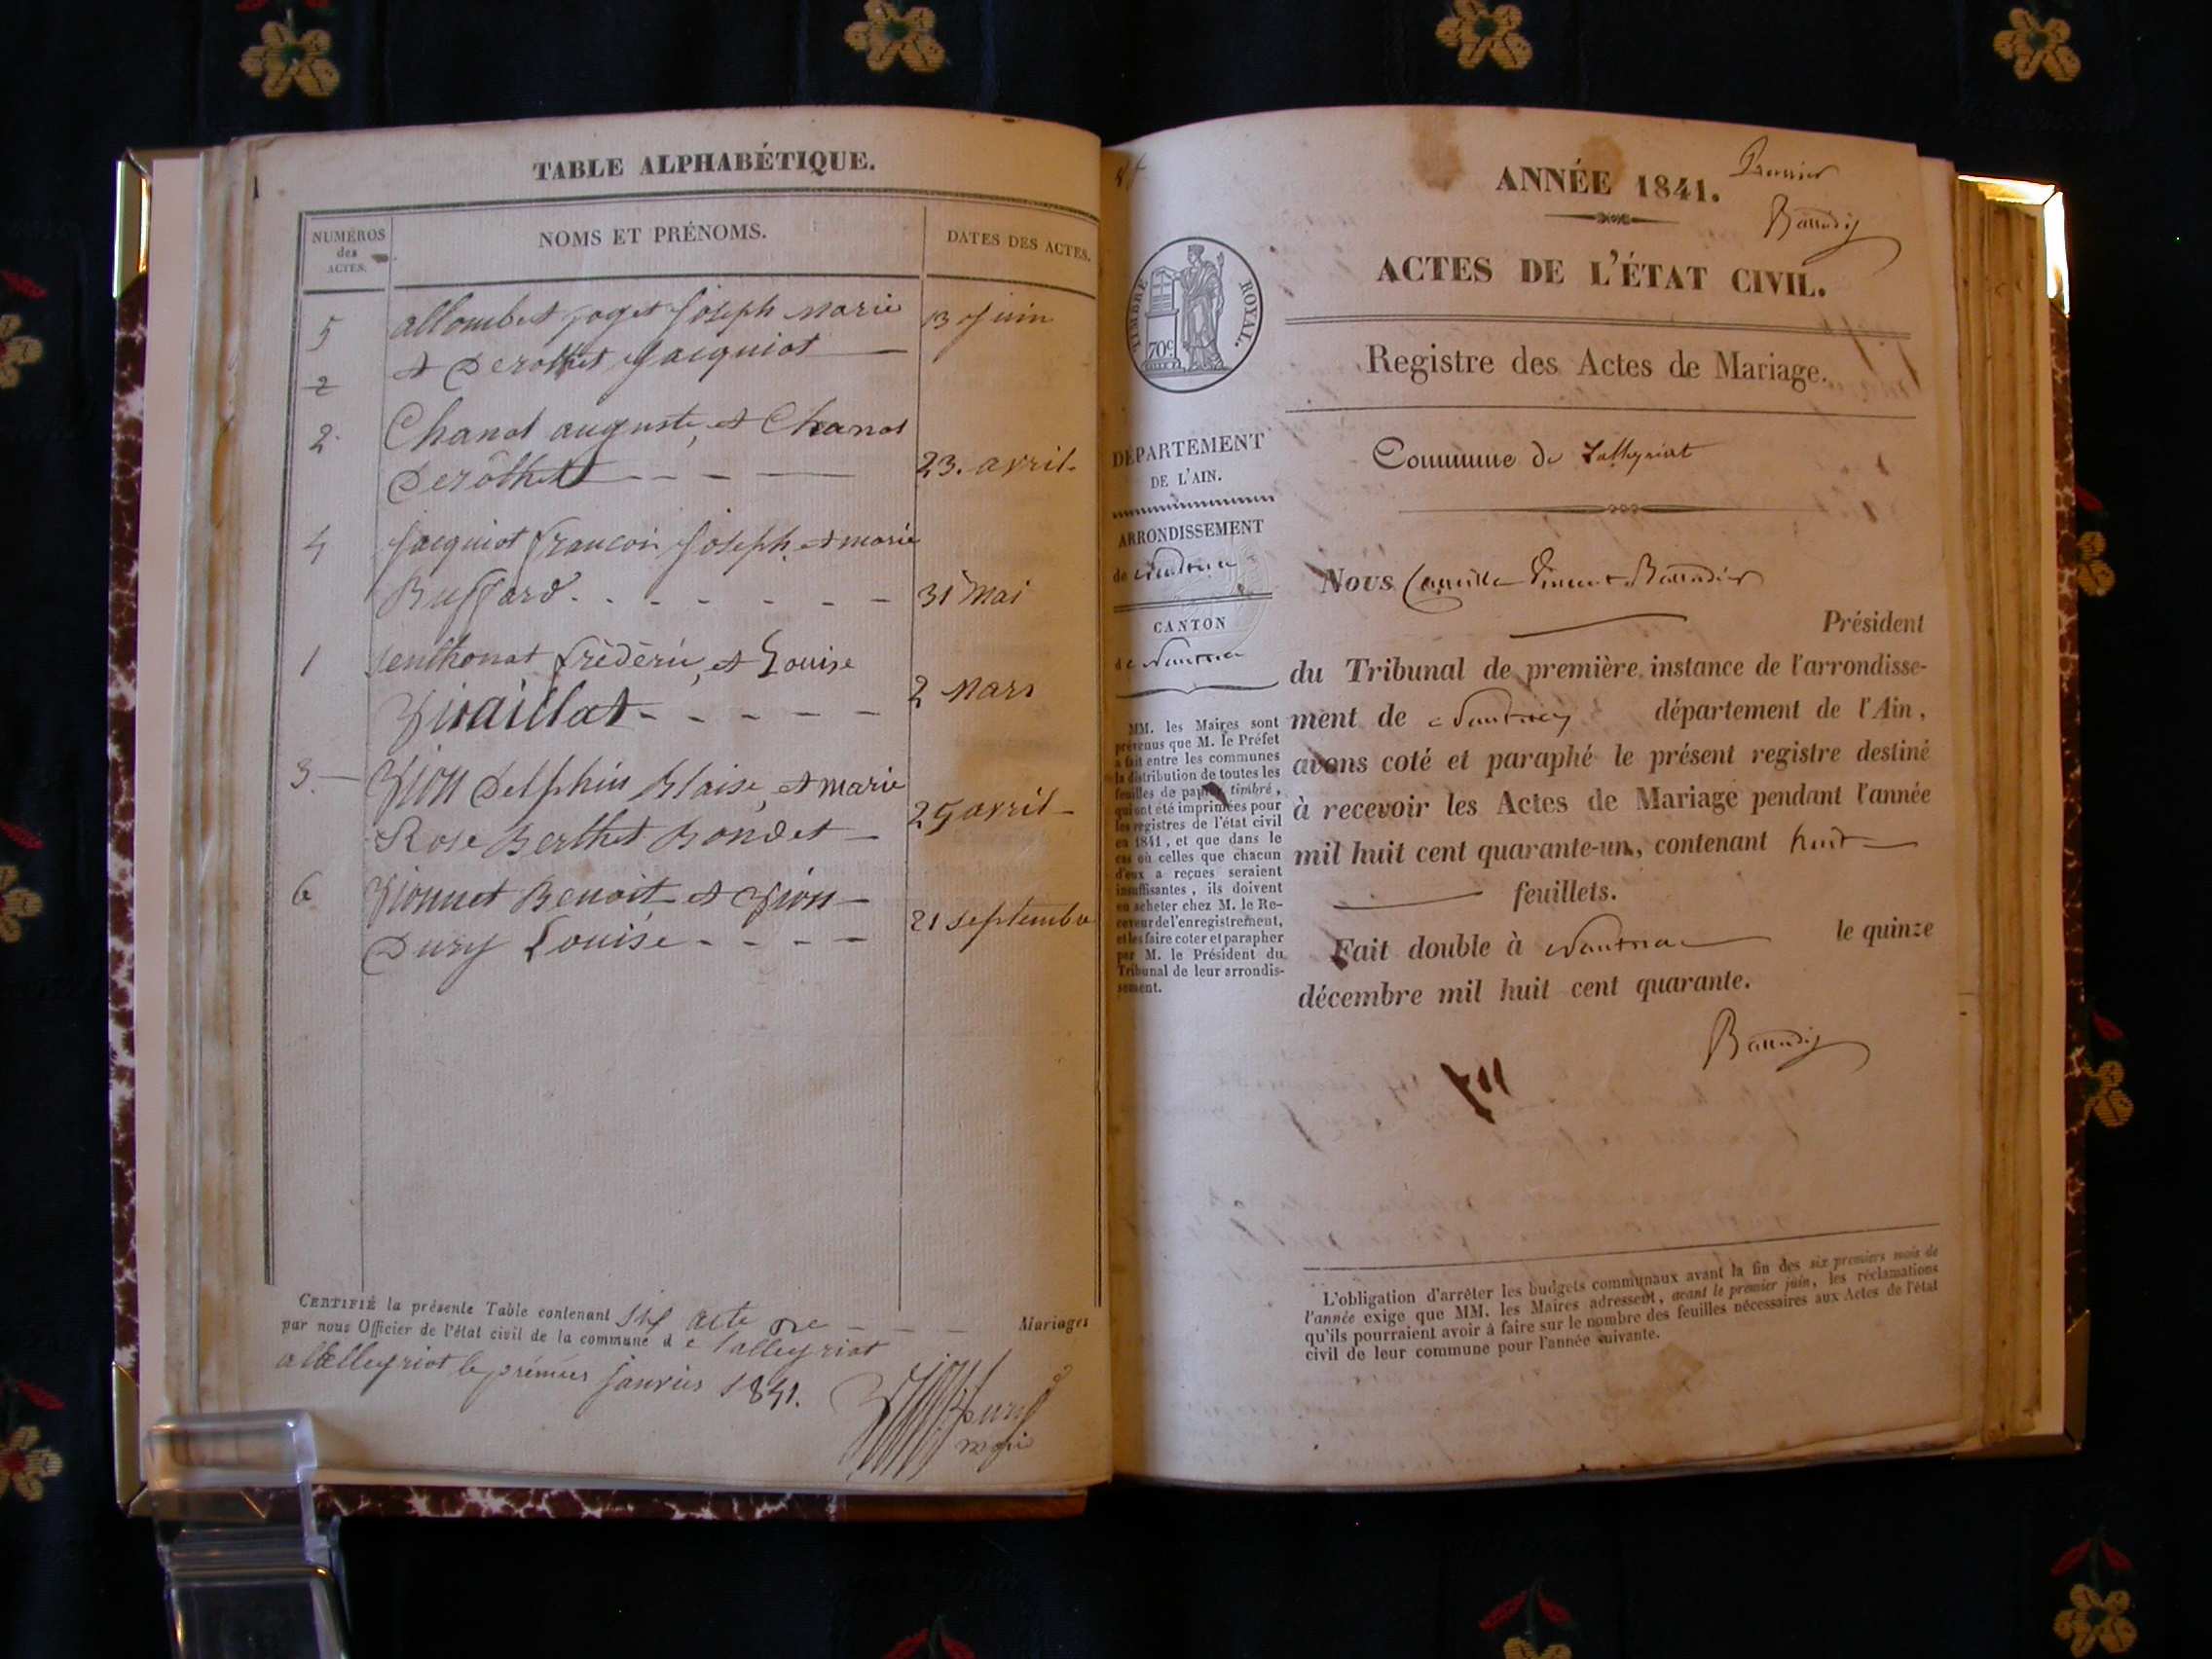 TABLE ALPHABÉTIQUE.
NUMÉROS
des
ACTES.
NOMS ET PRÉNOMS.
DATES DES ACTES.
5 allombet goget joseph marie 13 juin
2 et Derothet jacquiot
2. Chanal auguste, et Chanal
Derôthet 23. avril
4 jacquiot françois joseph et marie
Buffard. 31 Mai
1 Senthonat frédéric, et Louise
2 Mars
3 Delphin Blaise, et marie
Rose Berthet Bondet 25 avril
6 Benoit et
Dury Louise 21 septembre
CERTIFIÉ la présente Table contenant six acte de Mariages
par nous Officier de l'état civil de la commune de Lalleyriat
a lalleyriat le premier janvier 1841.
Dury
maire
Premier
ANNÉE 1841.
ACTES DE L'ÉTAT CIVIL.
TIMBRE ROYAL.
70c
Registre des Actes de Mariage.
Commune de Lalleyriat
DÉPARTEMENT
DE L'AIN.
ARRONDISSEMENT
de Nantua
CANTON
de Nantua
MM. les Maires sont
prévenus que M. le Préfet
a fait entre les communes
la distribution de toutes les
feuilles de papier timbré,
qui ont été imprimées pour
les registres de l'état civil
en 1841, et que dans le
cas où celles que chacun
d'eux a reçues seraient
insuffisantes, ils doivent
en acheter chez M. le Re-
ceveur de l'enregistrement,
et les faire coter et parapher
par M. le Président du
Tribunal de leur arrondis-
sement.
Nous Camille Vincent
Président
du Tribunal de première instance de l'arrondisse-
ment de Nantua département de l'Ain,
avons coté et paraphé le présent registre destiné
à recevoir les Actes de Mariage pendant l'année
mil huit cent quarante-un, contenant huit
feuillets.
Fait double à Nantua le quinze
décembre mil huit cent quarante.
L'obligation d'arrêter les budgets communaux avant la fin des six premiers mois de
l'année exige que MM. les Maires adressent, avant le premier juin, les réclamations
qu'ils pourraient avoir à faire sur le nombre des feuilles nécessaires aux Actes de l'état
civil de leur commune pour l'année suivante.